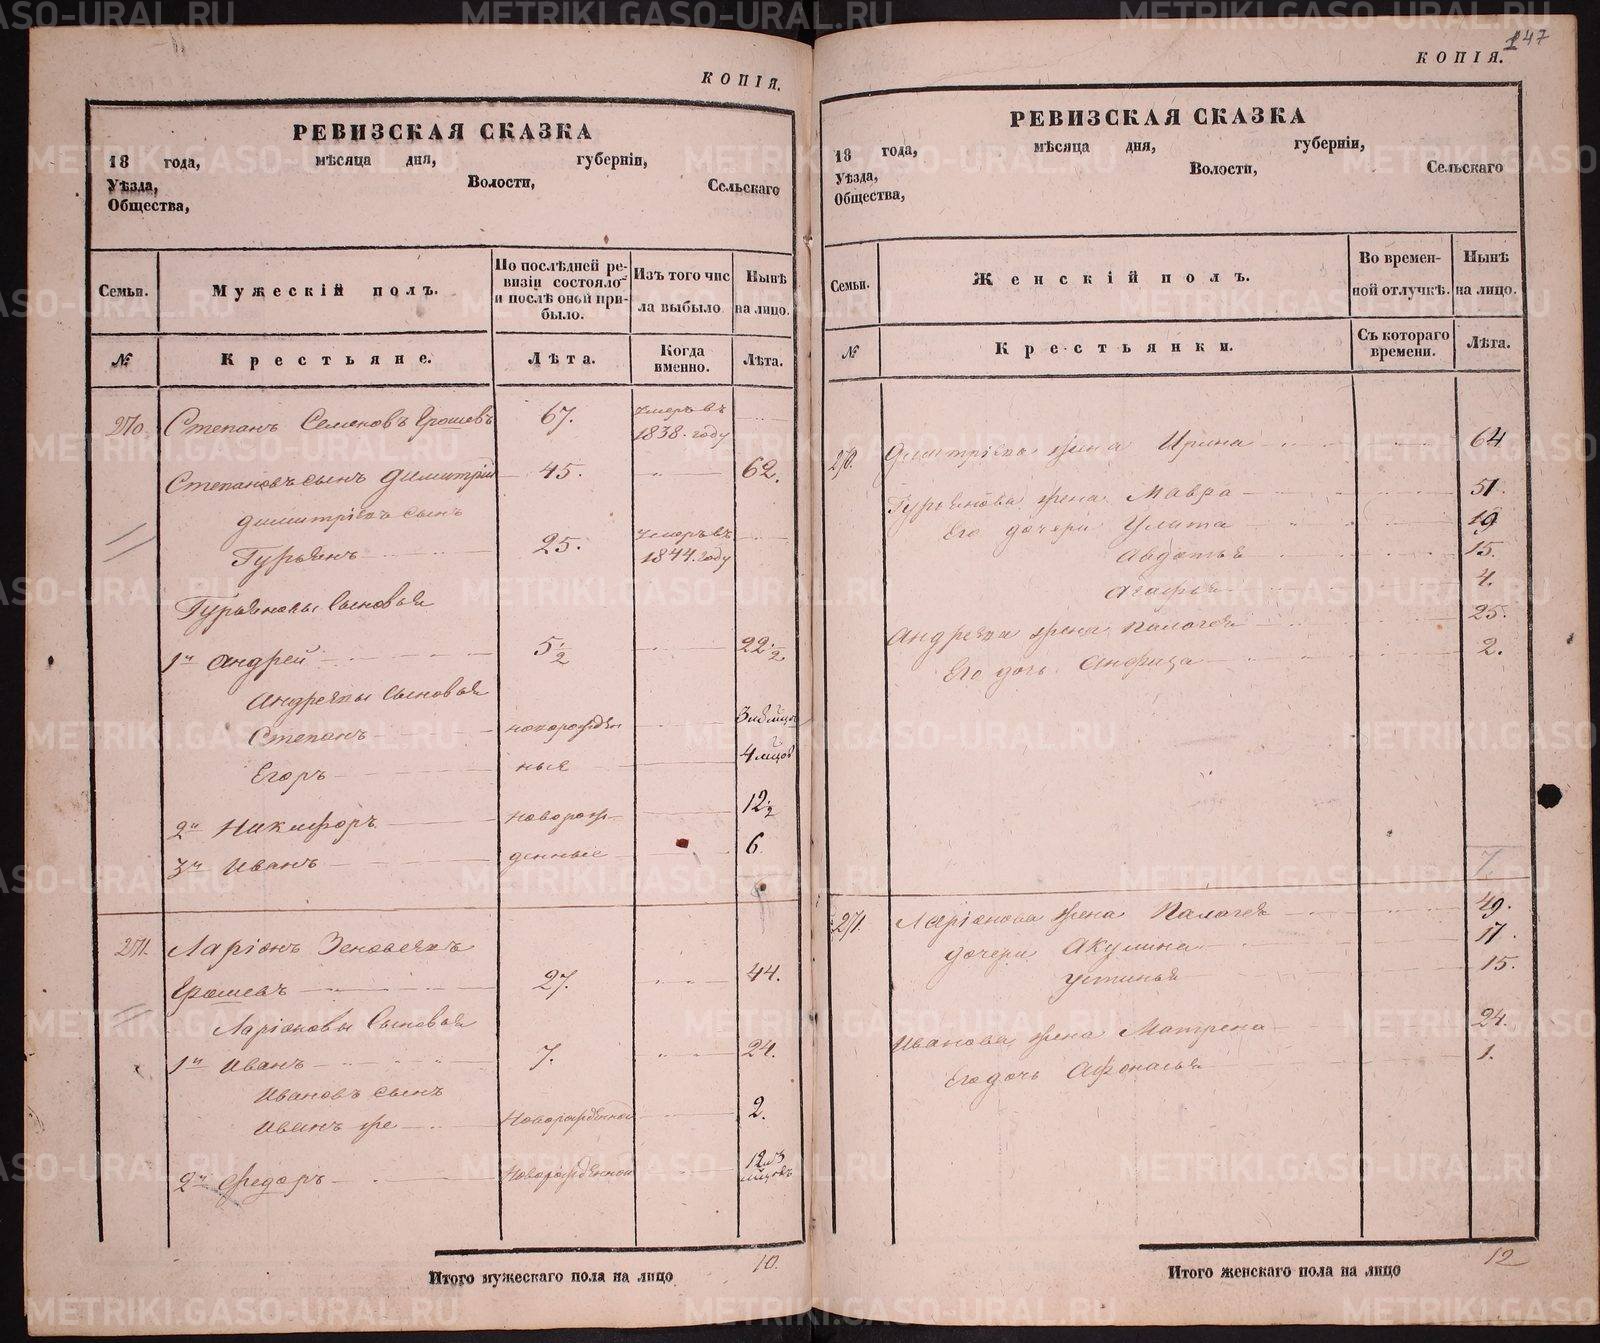 КОПІЯ.
РЕВИЗСКАЯ СКАЗКА
18 года, мѣсяца дня, губерніи,
Уѣзда, Волости, Сельскаго
Общества,
Семьи. Мужескій полъ. По послѣдней ревизіи состояло и послѣ оной прибыло. Изъ того числа выбыло. Нынѣ на лицо.
№ Крестьяне. Лѣта. Когда именно. Лѣта.
270. Степанъ Семеновъ Ерошевъ 67. умеръ въ 1838. году
Степановъ сынъ Димитрій 45. 62.
Димитріевъ сынъ
Гурьянъ 25. умеръ въ 1844. году
Гурьяновы сыновья
1й Андрей 5 1/2 22 1/2
Андреявы сыновья
Степанъ новорожден
Егоръ ные 4 мцов
2й Никифоръ новорож- 12 1/2
3й Иванъ денные 6.
271. Ларіонъ Зеновьевъ
Ерошевъ 27. 44.
Ларіоновы сыновья
1й Иванъ 7. 24.
Ивановъ сынъ
Иванъ же Новорожденной 2.
2й Федоръ Новорожденной
Итого мужескаго пола на лицо 10.
147
КОПІЯ.
РЕВИЗСКАЯ СКАЗКА
18 года, мѣсяца дня, губерніи,
Уѣзда, Волости, Сельскаго
Общества,
Семьи. Женскій полъ. Во временной отлучкѣ. Нынѣ на лицо.
№ Крестьянки. Съ котораго времени. Лѣта.
270. Димитріева жена Ирина 64
Гурьянова жена Мавра 51.
Его дочери Улита 19
Авдотья 15.
Агафья 4.
Андреява жена Палагея 25.
Его дочь Анфица 2.
7
271. Ларіонова жена Палагея 49.
дочери Акулина 17.
Устинья 15.
Иванова жена Матрена 24.
Его дочь Афонасья 1.
Итого женскаго пола на лицо 12
METRIKI.GASO-URAL.RU